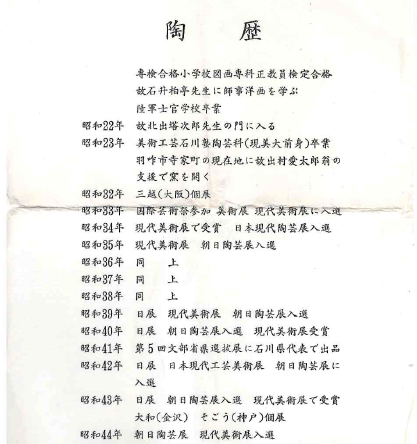 陶歴
専検合格小学校図画専科正教員検定合格
故石井柏亭先生に師事洋画を学ぶ
陸軍士官学校卒業
昭和22年 故北出塔次郎先生の門に入る
昭和23年 美術工芸石川塾陶芸科(現美大前身)卒業
羽咋市寺家町の現在地に故出村愛太郎翁の
支援で窯を開く
昭和32年 三越(大阪)個展
昭和33年 国際芸術祭参加 美術展 現代美術展に入選
昭和34年 現代美術展で受賞 日本現代陶芸展入選
昭和35年 現代美術展 朝日陶芸展入選
昭和36年 同上
昭和37年 同上
昭和38年 同上
昭和39年 日展 現代美術展 朝日陶芸展入選
昭和40年 日展 朝日陶芸展入選 現代美術展受賞
昭和41年 第5回文部省県選抜展に石川県代表で出品
昭和42年 日展 日本現代工芸美術展 朝日陶芸展に
入選
昭和43年 日展 朝日陶芸展入選 現代美術展で受賞
大和(金沢) そごう(神戸)個展
昭和44年 朝日陶芸展 現代美術展入選